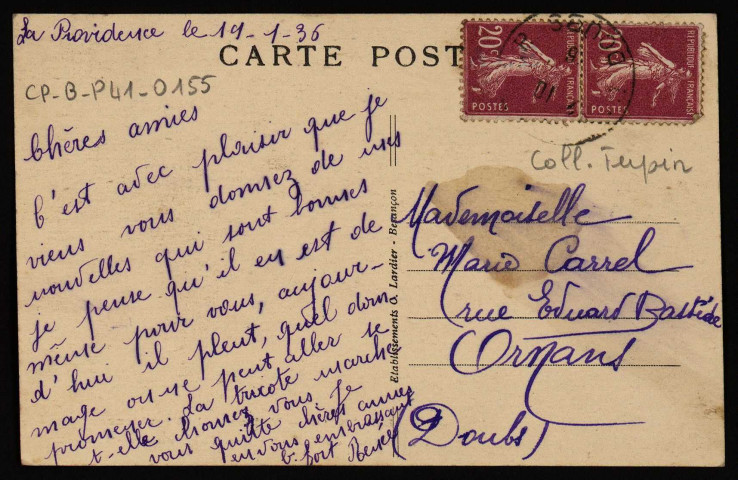 La Providence le 19-1-36
CARTE POST
CP-B-P41-0155
Chères amies
C'est avec plaisir que je
viens vous donnez de mes
nouvelles qui sont bonnes
je pense qu'il en est de
même pour vous, aujour-
d'hui il pleut, quel dom-
mage on ne peut aller se
promener. La tricote marche
t-elle chomez vous. Je
vous quitte chères amies
en vous embrassant
b. fort
Etablissements O. Lardier - Besançon
20c
POSTES
REPUBLIQUE FRANÇAISE
20c
POSTES
REPUBLIQUE FRANÇAISE
DOUBS
Coll. Tupin
Mademoiselle
Marie Carrel
rue Eduard Bastide
Ornans
(Doubs)